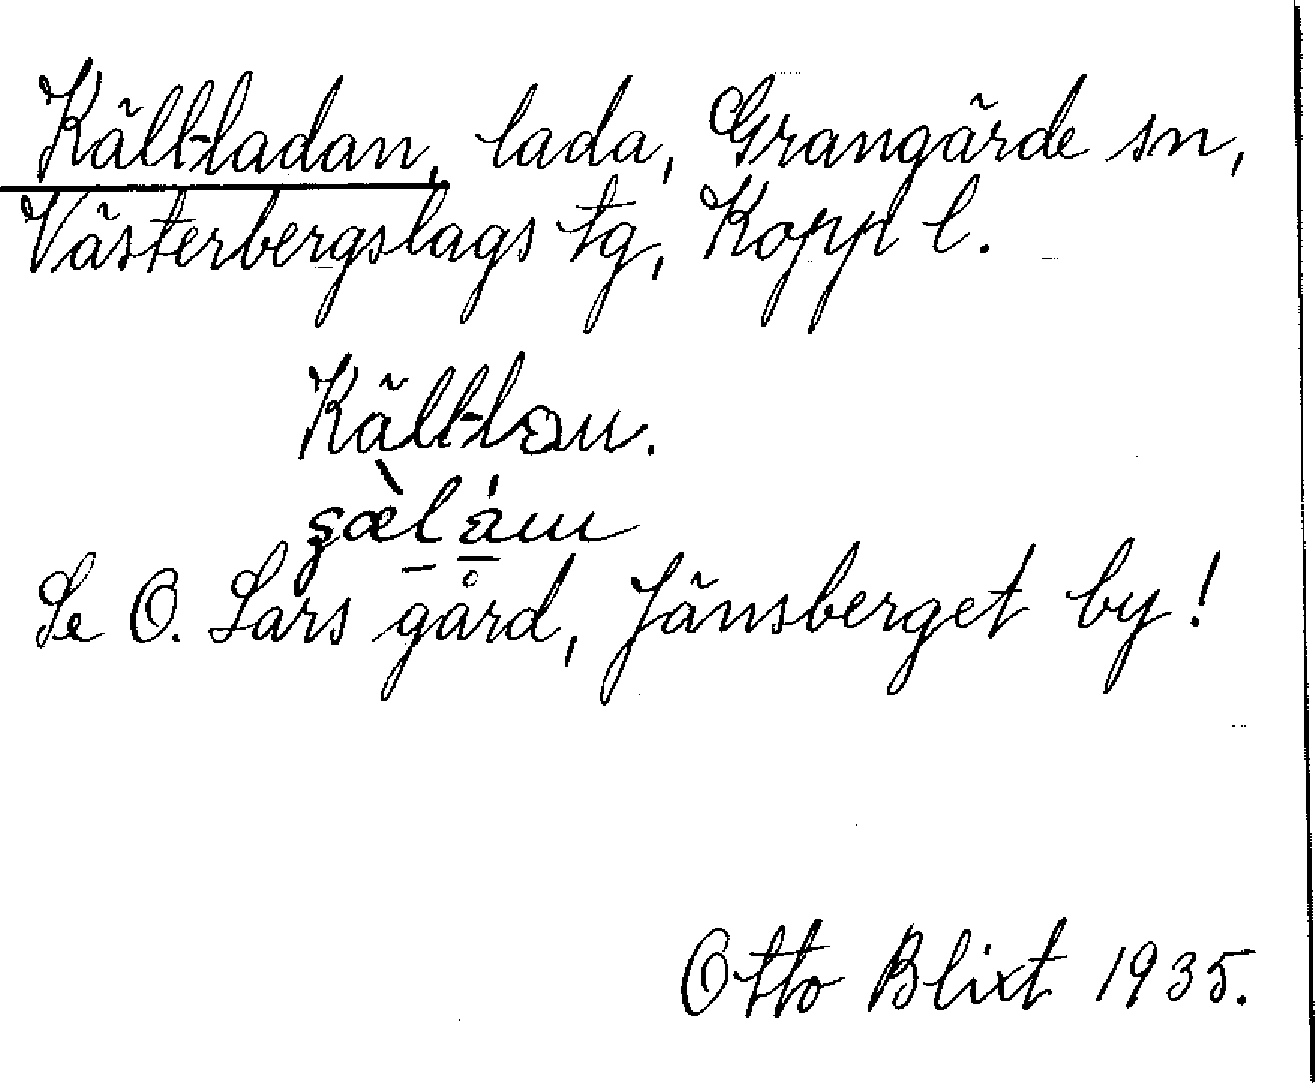 Käll-ladan, lada, Grangärde sn,
Västerbergslags tg, Kopp l.
Käll-lau.
Se O. Lars gård, Jänsberget by!
Otto Blixt 1935.